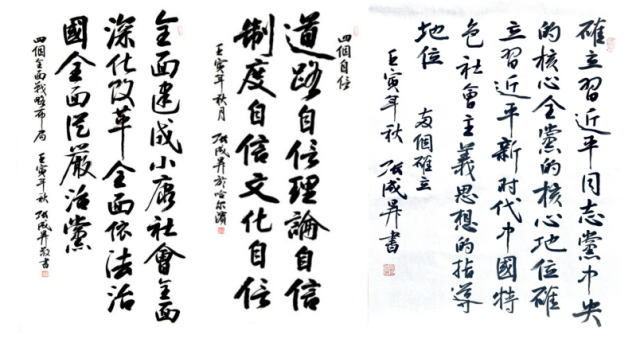 確立習近平同志黨中央
的核心全黨的核心地位確
立習近平新时代中國特
色社會主義思想的指導
地位
兩個確立
壬寅年秋 张成昇書
四個自信
道路自信理論自信
制度自信文化自信
壬寅年秋月 张成昇於哈尔濱
全面建成小康社會全面
深化改革全面依法治
國全面從嚴治黨
四個全面戰略布局 壬寅年秋 张成昇敬書